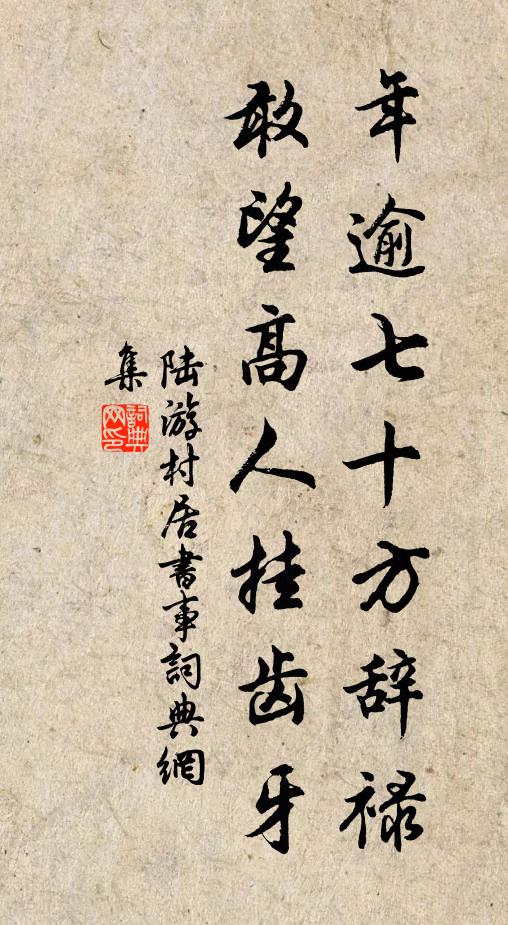 年逾七十方辞禄
敢望高人挂齿牙
陆游村居書事詞典網
集
詞典
网印